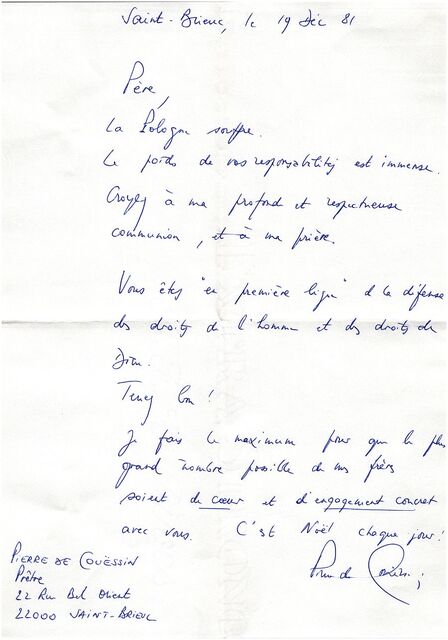 Saint-Brieuc, le 19 Déc 81
Père,
La Pologne souffre.
Le poids de vos responsabilités est immense.
Croyez à ma profond et respectueuse
communion, et à ma prière.
Vous êtes "en première ligne" de la défense
des droits de l'homme et des droits de
Dieu.
Tenez bon !
Je fais le maximum pour que le plus
grand nombre possible de mes frères
soient de cœur et d'engagement concret
avec vous. C'est Noël chaque jour !
Pierre de Couëssin
PIERRE DE COUËSSIN
Prêtre
22 Rue Bel Orient
22000 SAINT-BRIEUC